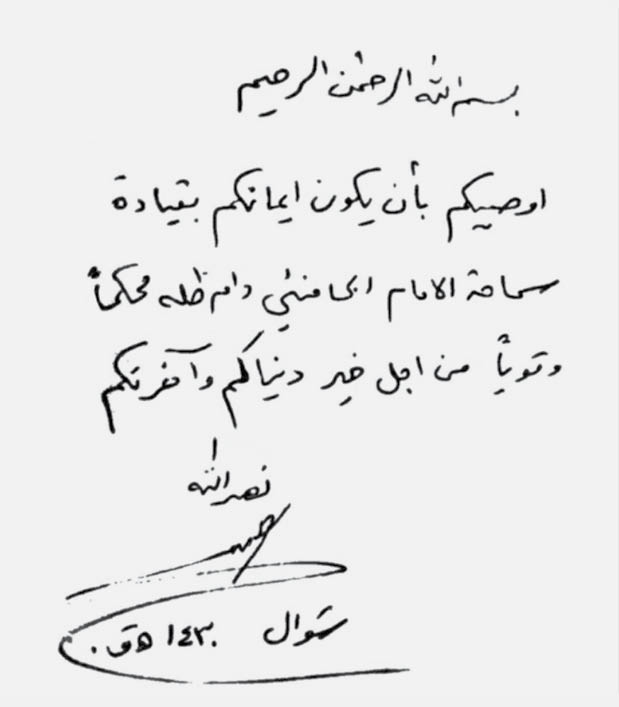 بسم الله الرحمن الرحيم
اوصيكم بأن يكون ايمانكم بقيادة
سماحة الامام الخامنئي دام ظله محكماً
وقوياً من اجل خير دنياكم وآخرتكم
نصر الله
شوال ١٤٣٠ هـ ق.